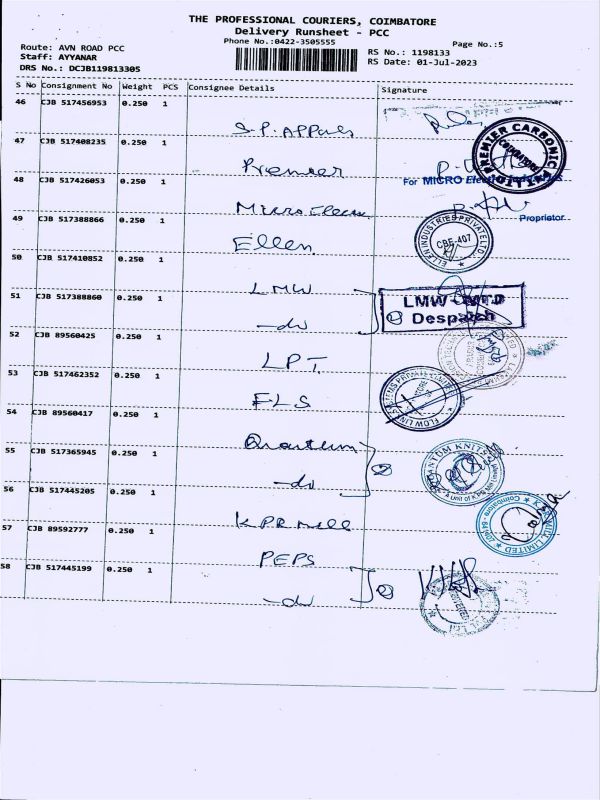 THE PROFESSIONAL COURIERS, COIMBATORE
Delivery Runsheet - PCC
Phone No.:0422-3505555
Page No.:5
Route: AVN ROAD PCC
Staff: AYYANAR
DRS No.: DCJB119813305
RS No.: 1198133
RS Date: 01-Jul-2023
S No Consignment No Weight PCS Consignee Details Signature
46 CJB 517456953 0.250 1
S.P. Appars
47 CJB 517408235 0.250 1
Premier
PREMIER CARBONIC
48 CJB 517426053 0.250 1
Micro Elecon
For MICRO
Proprietor
49 CJB 517388866 0.250 1
Ellen
ELLEN INDUSTRIES PRIVATE LTD
CBE-407
50 CJB 517410852 0.250 1
LMW
51 CJB 517388860 0.250 1
-do
2
LMW
Despatch
52 CJB 89560425 0.250 1
LPT
53 CJB 517462352 0.250 1
FLS
54 CJB 89560417 0.250 1
Quantum
QUANTUM KNITS
55 CJB 517365945 0.250 1
-do
2
56 CJB 517445205 0.250 1
KPR Mill
LIMITED
57 CJB 89592777 0.250 1
PEPS
58 CJB 517445199 0.250 1
-do
2